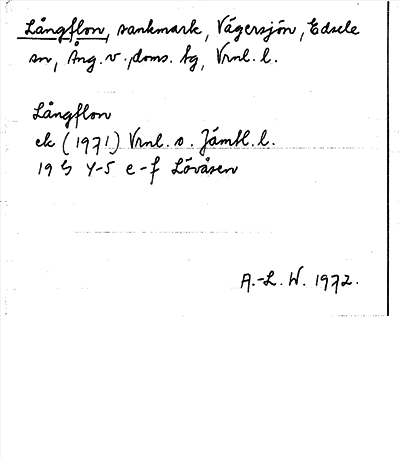 Långflon, sankmark, Vägersjön, Edsele
sn, Ång. v. doms. tg, Vrnl. l.
Långflon
ek (1971) Vrnl. o. Jämtl. l.
19 G 4-5 e-f Lövåsen
A.-L. W. 1972.